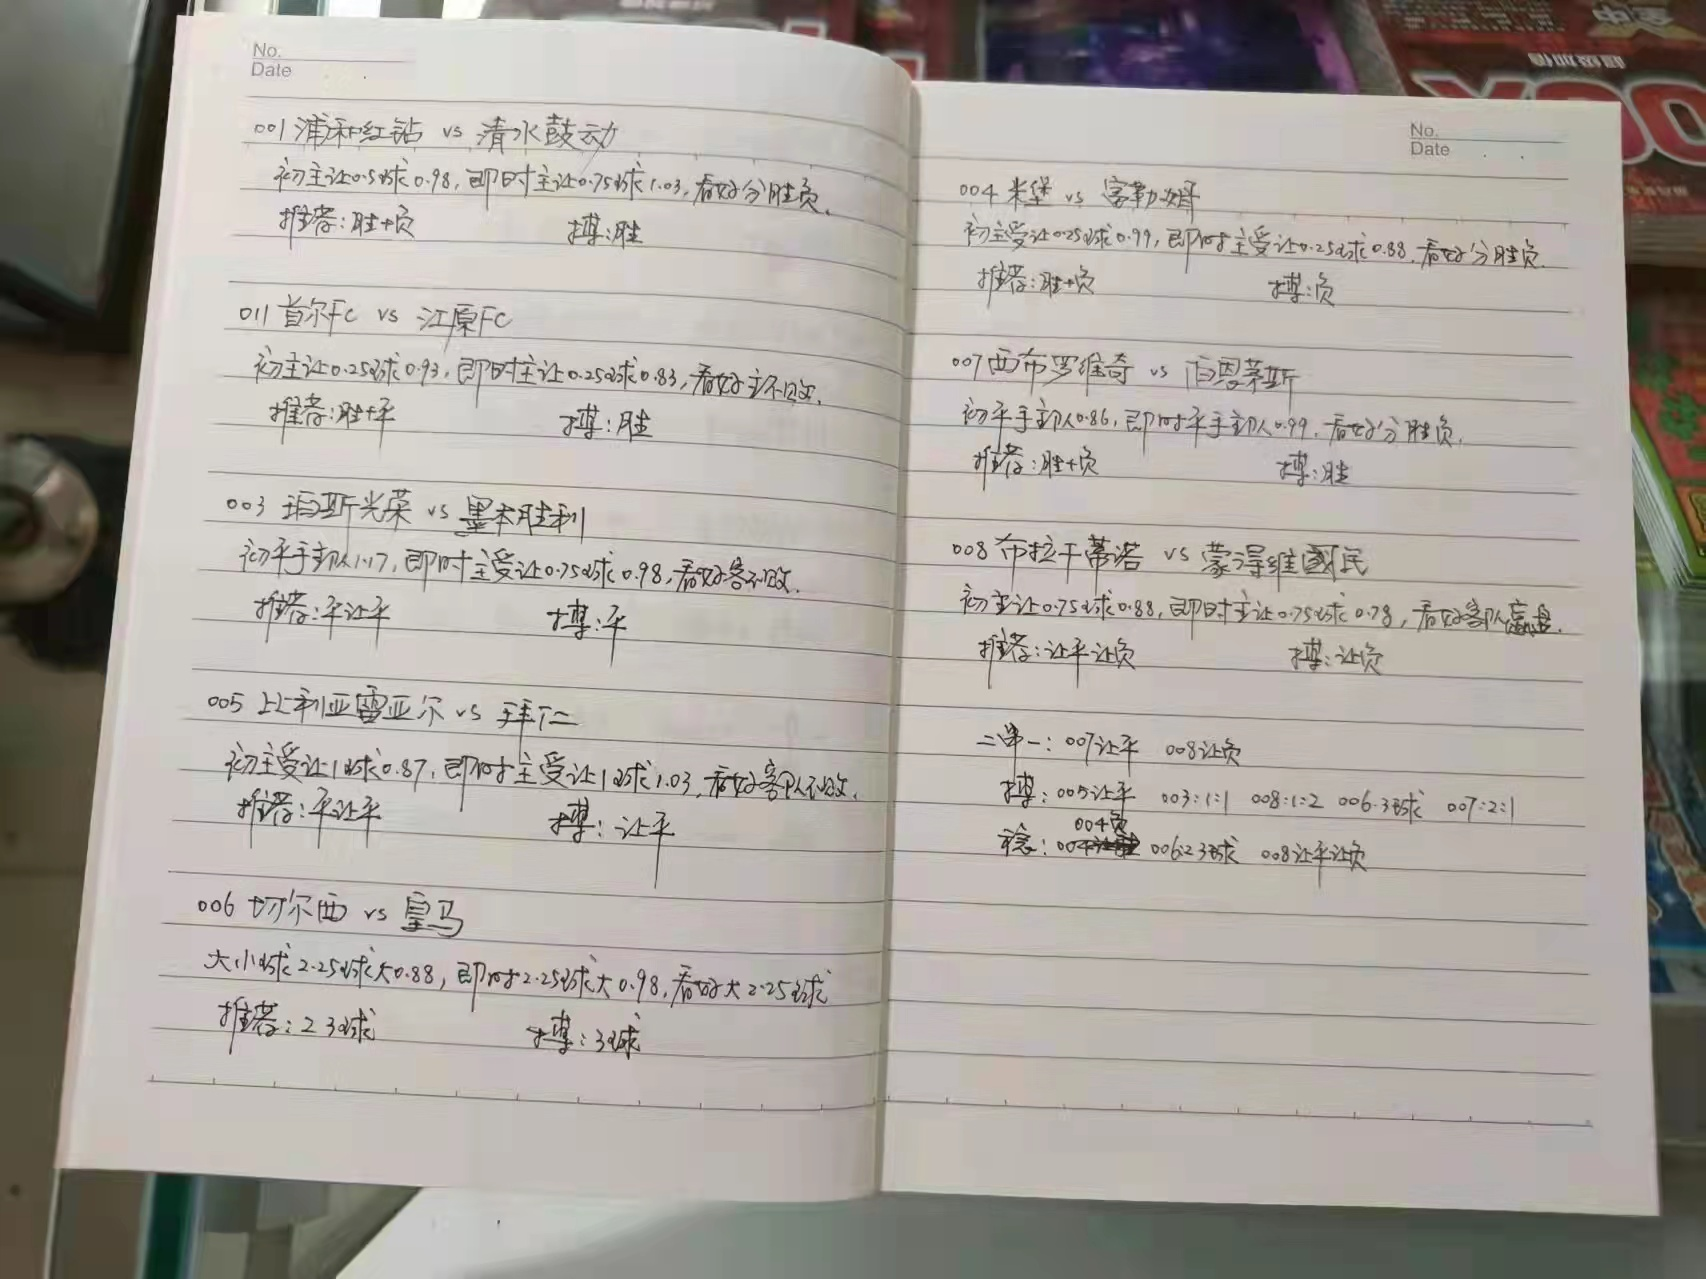 No.
Date
001 浦和红钻 vs 清水鼓动
初主让0.5球0.98,即时主让0.75球1.03,看好分胜负.
推荐:胜+负 搏:胜
011 首尔FC vs 江原FC
初主让0.25球0.93,即时主让0.25球0.83,看好主不败.
推荐:胜+平 搏:胜
003 珀斯光荣 vs 墨本胜利
初平手主队1.17,即时主受让0.75球0.98,看好客不败.
推荐:平让平 搏:平
005 比利亚雷亚尔 vs 拜仁
初主受让1球0.87,即时主受让1球1.03,看好客队不败.
推荐:平让平 搏:让平
006 切尔西 vs 皇马
大小球2.25球大0.88,即时2.25球大0.98,看好大2.25球
推荐:2 3球 搏:3球
No.
Date
004 米堡 vs 富勒姆
初主受让0.25球0.99,即时主受让0.25球0.88.看好分胜负.
推荐:胜+负 搏:负
007 西布罗维奇 vs 伯恩茅斯
初平手主队0.86,即时平手主队0.99,看好分胜负.
推荐:胜+负 搏:胜
008 布拉干蒂诺 vs 蒙得维國民
初主让0.75球0.88,即时主让0.75球0.78,看好客队赢盘.
推荐:让平让负 搏:让负
二串一:007让平 008让负
搏:005让平 003:1:1 008:1:2 006.3球 007:2:1
稳:004负 006:2 3球 008让平让负